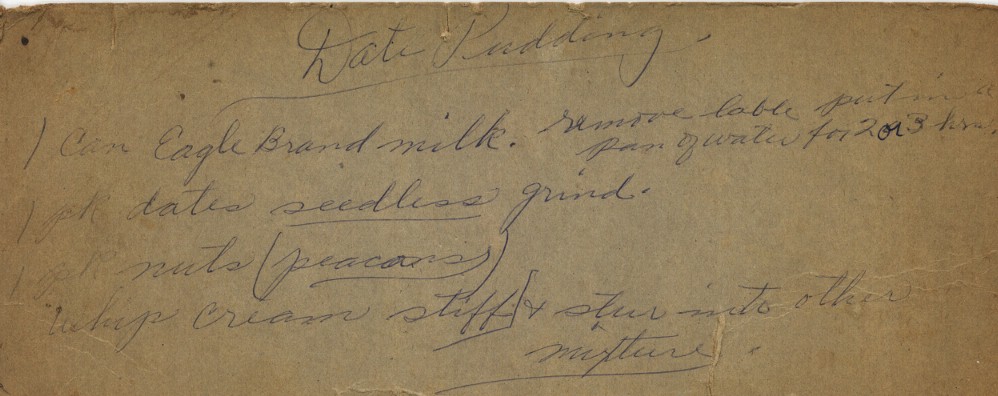 Date Pudding.
1 can Eagle Brand milk. remove lable put in a
pan of water for 2 or 3 hrs.
1 pk dates seedless grind.
1 pk nuts (peacans)
whip cream stiff & stur into other
mixture.